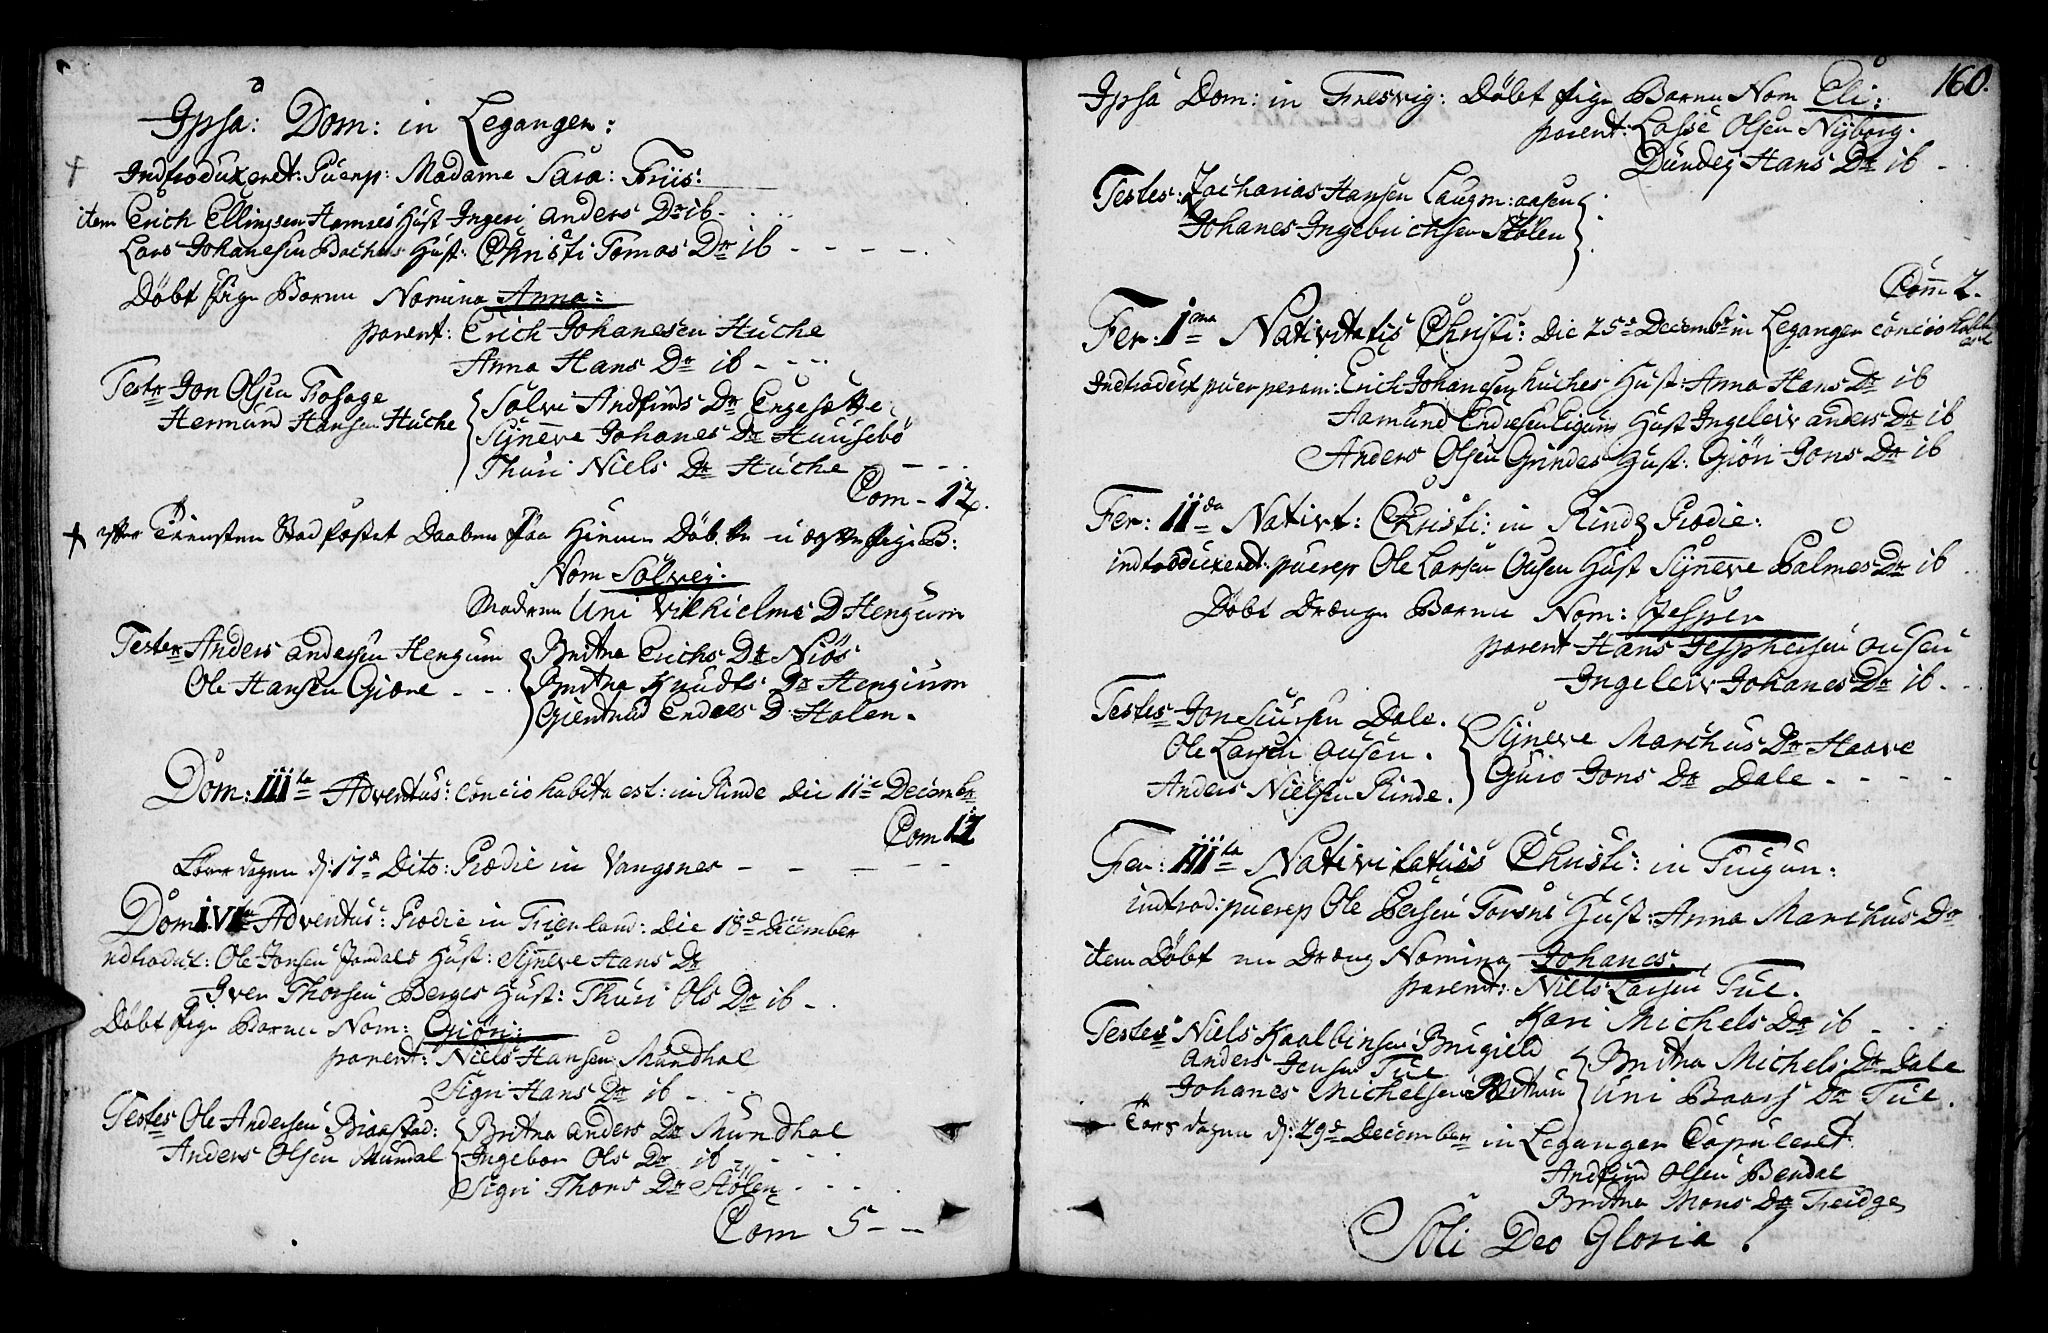 Ipsa: Dom: in Leganger:
Indtroduxeret: Puerp: Madame Sara: Friis:
item Erich Ellingsen Hamres Hust Ingeri Anders Dr ib -
Lars Johanesen Bachus Hust: Christi Tomas Dr ib - - - -
Døbt Pige Barnn Nomina Anna:
parent: Erich Johanesen Huche
Anna Hans Dr ib - - -
Testr Jon Olsen Fosøge
Hermund Hansen Huche
Sølvi Andfinds Dr Engesætte
Sÿneve Johanes Dr Huusebø
Thuri Niels Dr Huche - - -
Com - 12.
efter Tienesten Stadfæstet Daaben paa Hiemme Døbte u ægte pige B:
Nom Sølvej.
Modren Uni Vilhielms D Hengum
Testes Anders Andersen Hengum
Ole Hansen Giøre - -
Britha Erichs Dr Niøs
Britha Knudts Dr Hengium
Giertrud Endres D Stalen.
Dom: IIItia Adventus: Concio habita est: in Rinde die 11te Decembr
Com 12
Løverdagen d: 17d Dito: Prædie in Vangsnes - - - -
Dom IVta Adventus: Prædie in Fierland: Die 18de December
indtrodux: Ole Jonsen Jordals Hust: Sÿneve Hans Dr
Iver Thorsen Berges Hust: Thuri Ols Dr ib -
Døbt Pige Barnn Nom: Giøri:
parent: Niels Hansen Mundhal
Sigri Hans Dr ib - -
Testes Ole Andersen Biaastad:
Anders Olsen Mundal
Britha Anders Dr Mundhal
Ingebor Ols Dr ib - - -
Sigri Thors Dr Stølen - - -
Com 5 - -
160.
Ipsa Dom: in Fresvig: Døbt Pige Barnn Nom Eli:
parent: Lasse Olsen Nÿborg.
Dundej Hans Dr ib -
Testes: Zacharias Hansen Laugm:aasen
Johanes Ingebrichtsen Stølen
Com 2.
Fer: Ima Nativitatis Christi: die 25de Decembr in Leganger concio habita est
Indtrodux puerperam: Erich Johanesen Huches Hust: Anna Hans Dr ib
Aamund Endresen Eigum Hust Ingeleiv Anders Dr ib
Anders Olsen Grindes Hust: Giøri Jons Dr ib
Fer: IIda Nativt: Christi: in Rinde Prædie:
indtroduxeret puerp Ole Larsen Ousen Hust Sÿneve Palmes Dr ib
Døbt Drænge Barnn Nom: Jesper
parent Hans Jesphersen Ousen
Ingeleiv Johanes Dr ib - -
Testes Jon Siursen Dale.
Ole Larsen Ousen.
Anders Nielsen Rinde.
Sÿneve Marchus Dr Haave
Guro Jons Dr Dale - - - -
Fer: IIItia Nativitatiss Christi: in Tiugun:
indtrod: puerp Ole Persen Torsne Hust: Anna Marchus Dr
item Døbt en Dræng Nomina Johanes.
parent: Niels Larsen Tue.
Kari Michels Dr ib - - -
Testes Niels Kaalbensen Brugield
Anders Jensen Tue
Johanes Michelsen
Britha Michels Dr Dale
Uni Baars Dr Tue.
Torsdagen d: 29de December in Leganger Copuleret
Andfind Olsen Bendal
Britha Mons Dr Freidge
Soli Deo Gloria!